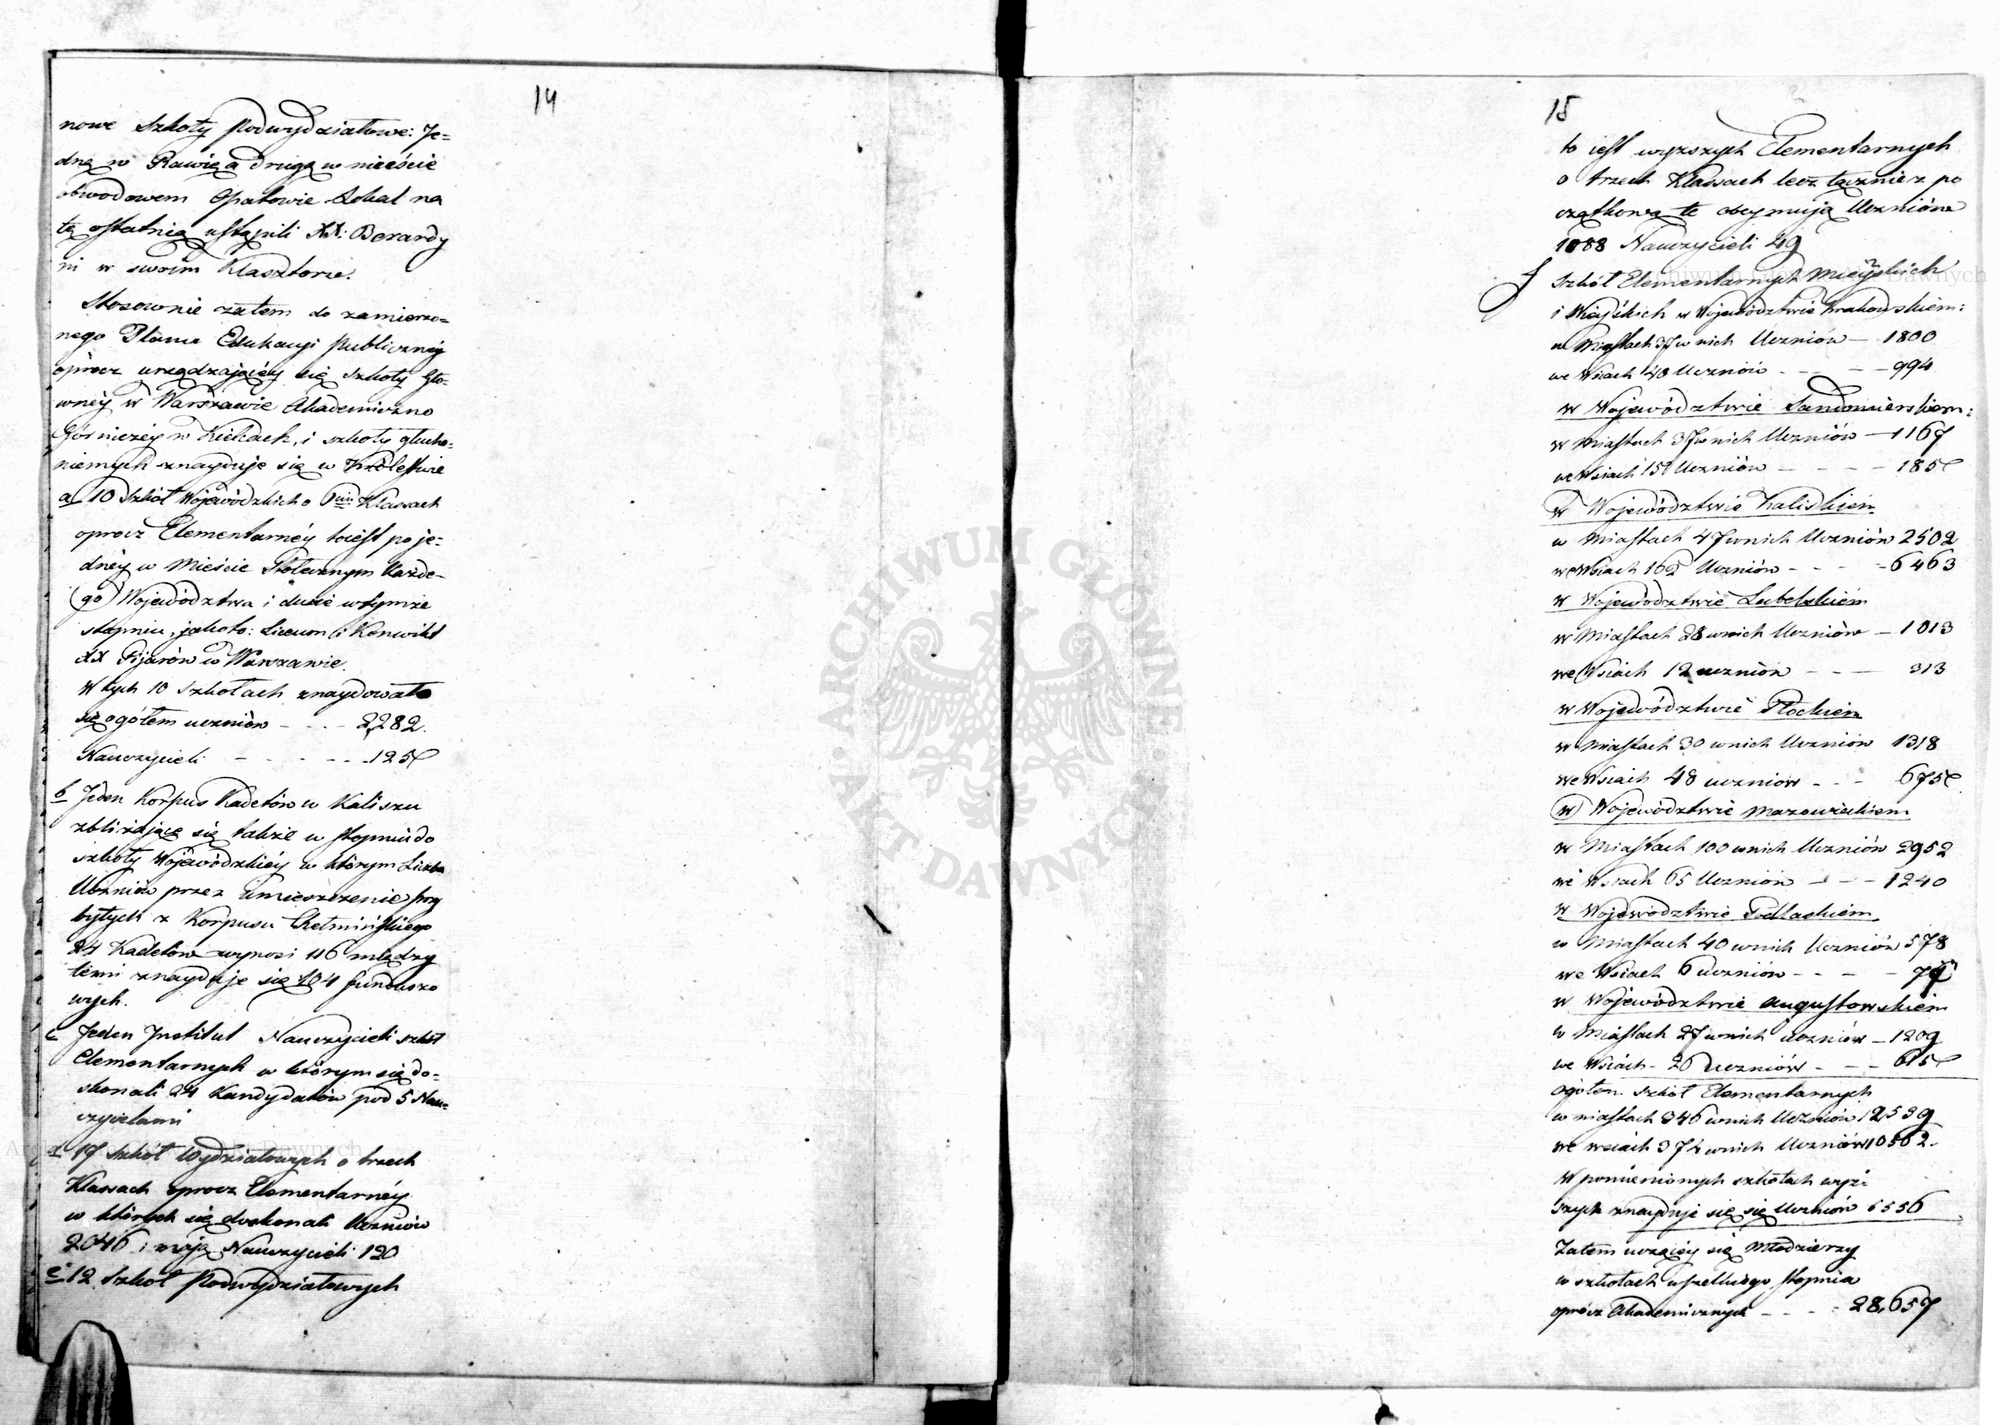 14
nowe Szkoły Podwydziałowe: Je=
dną w Rawie a drugą w mieście
obwodowem Opatowie. Lokal na
tę ostatnią ustąpili XX: Berardy
ni w swoim Klasztorze.
Stosownie zatem do zamierzo=
nego Planu Edukacyi publicznéy
óprócz urządzaiącéy się szkoły Głó=
wnéy w Warszawie Akademiczno
Górniczéy w Kielcach, i szkoły głucho=
niemych znayduje się w Królestwie
a 10 Szkół Wojewódzkich o 6ciu Klassach
oprócz Elementarnéy to iest po je=
dnéy w Mieście Stołecznym każde=
go Województwa i dwie w tymże
stopniu, jakoto: Liceum i Konwikt
XX Pijarów w Warszawie.
W tych 10 szkołach znaydowało
się ogółem uczniów - - - 2,282.
Nauczycieli - - - - - - 125
b Jeden Korpus Kadetów w Kaliszu
zbliżające się także w stopniu do
szkoły Wojewódzkiéy w którym Liczba
Uczniów przez umieszczenie przy
byłych z Korpusu Chełmińskiego
24 Kadetów wynosi 116 między
témi znayduje się 104 funduszo
wych.
c Jeden Institut Nauczycieli szkół
Elementarnych w którym się do=
skonali 24 Kandydatów pod 5 Nau=
czycielami
d 17 Szkół Wydziałowych o trzech
Klassach oprócz Elementarnéy
w których się doskonali Uczniów
2046 i mają Nauczycieli 120
e 12 Szkół Podwydziałowych
15
to iest wyższych Elementarnych
o trzech Klassach lecz łącznie z po
czątkową te obeymują Uczniów
1088 Nauczycieli 49
f Szkół Elementarnych Mieyskich
i Wieyskich w Województwie Krakowskiem:
w Miastach 37 w nich Uczniów - 1800
we Wsiach 48 Uczniów - - - - 994
w Województwie Sandomierskiem:
w Miastach 37 w nich Uczniów - 1167
we Wsiach 159 Uczniów - - - - 185
w Województwie Kaliskiem
w Miastach 47 w nich Uczniów 2502
we Wsiach 162 Uczniów - - - - 6463
w Województwie Lubelskiem
w Miastach 28 w nich Uczniów - 1013
we Wsiach 12 uczniów - - - 313
w Województwie Płockiem
w Miastach 30 w nich Uczniów 1318
we Wsiach 48 uczniów - - - 675
w Województwie Mazowieckiem
w Miastach 100 w nich Uczniów 2952
we Wsiach 65 Uczniów - - - 1240
w Województwie Podlaskiem
w Miastach 40 w nich Uczniów 578
we Wsiach 6 uczniów - - - -
w Województwie Augustowskiem
w Miastach 27 w nich uczniów - 1209
we Wsiach - 26 uczniów - - - 615
ogółem szkół Elementarnych
w miastach 346 w nich Uczniów 12539
we wsiach 374 w nich Uczniów 10562.
W pomienionych szkołach wyż=
szych znayduje się się Uczniów 5556
Zatem uczącéy się Młodzierzy
w szkołach wszelkiego stopnia
oprócz Akademicznych - - - - 28,657
ARCHIWUM GŁÓWNE AKT DAWNYCH
Archiwum Główne Akt Dawnych
Archiwum Główne Akt Dawnych